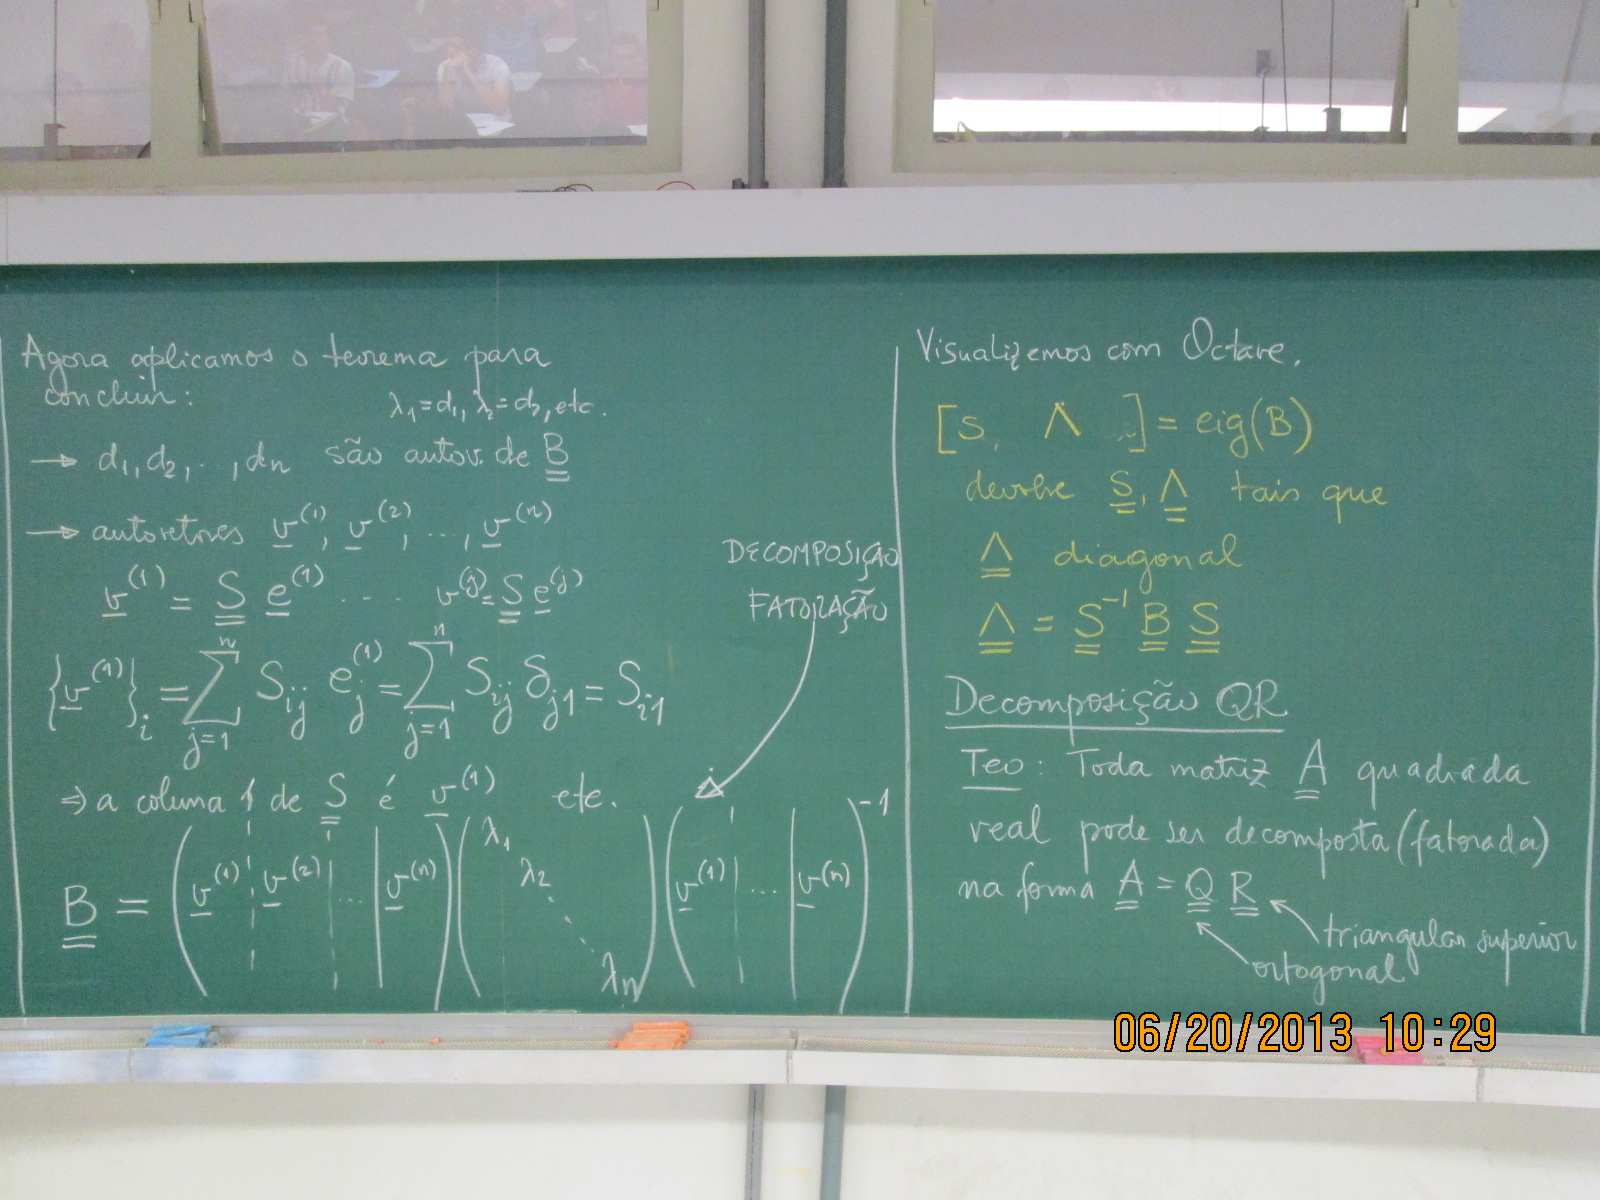 Agora aplicamos o teorema para
concluir:
λ₁=d₁, λ₂=d₂, etc.
→ d₁, d₂, ..., dn são autov. de B
→ autovetores v⁽¹⁾, v⁽²⁾, ..., v⁽ⁿ⁾
v⁽¹⁾ = S e⁽¹⁾ .... v⁽ʲ⁾ = S e⁽ʲ⁾
{v⁽¹⁾}ᵢ = Σ_{j=1}^{n} S_{ij} e_j^{(1)} = Σ_{j=1}^{n} S_{ij} δ_{j1} = S_{i1}
⇒ a coluna 1 de S é v⁽¹⁾ etc.
B = (v⁽¹⁾ ¦ v⁽²⁾ ¦ ... | v⁽ⁿ⁾) (λ₁ λ₂ ... λn) (v⁽¹⁾ ¦ ... | v⁽ⁿ⁾)⁻¹
DECOMPOSIÇÃO
FATORAÇÃO
Visualizemos com Octave.
[S, Λ ..] = eig(B)
devolve S, Λ tais que
Λ diagonal
Λ = S⁻¹ B S
Decomposição QR
Teo: Toda matriz A quadrada
real pode ser decomposta (fatorada)
na forma A = Q R
triangular superior
ortogonal
06/20/2013 10:29